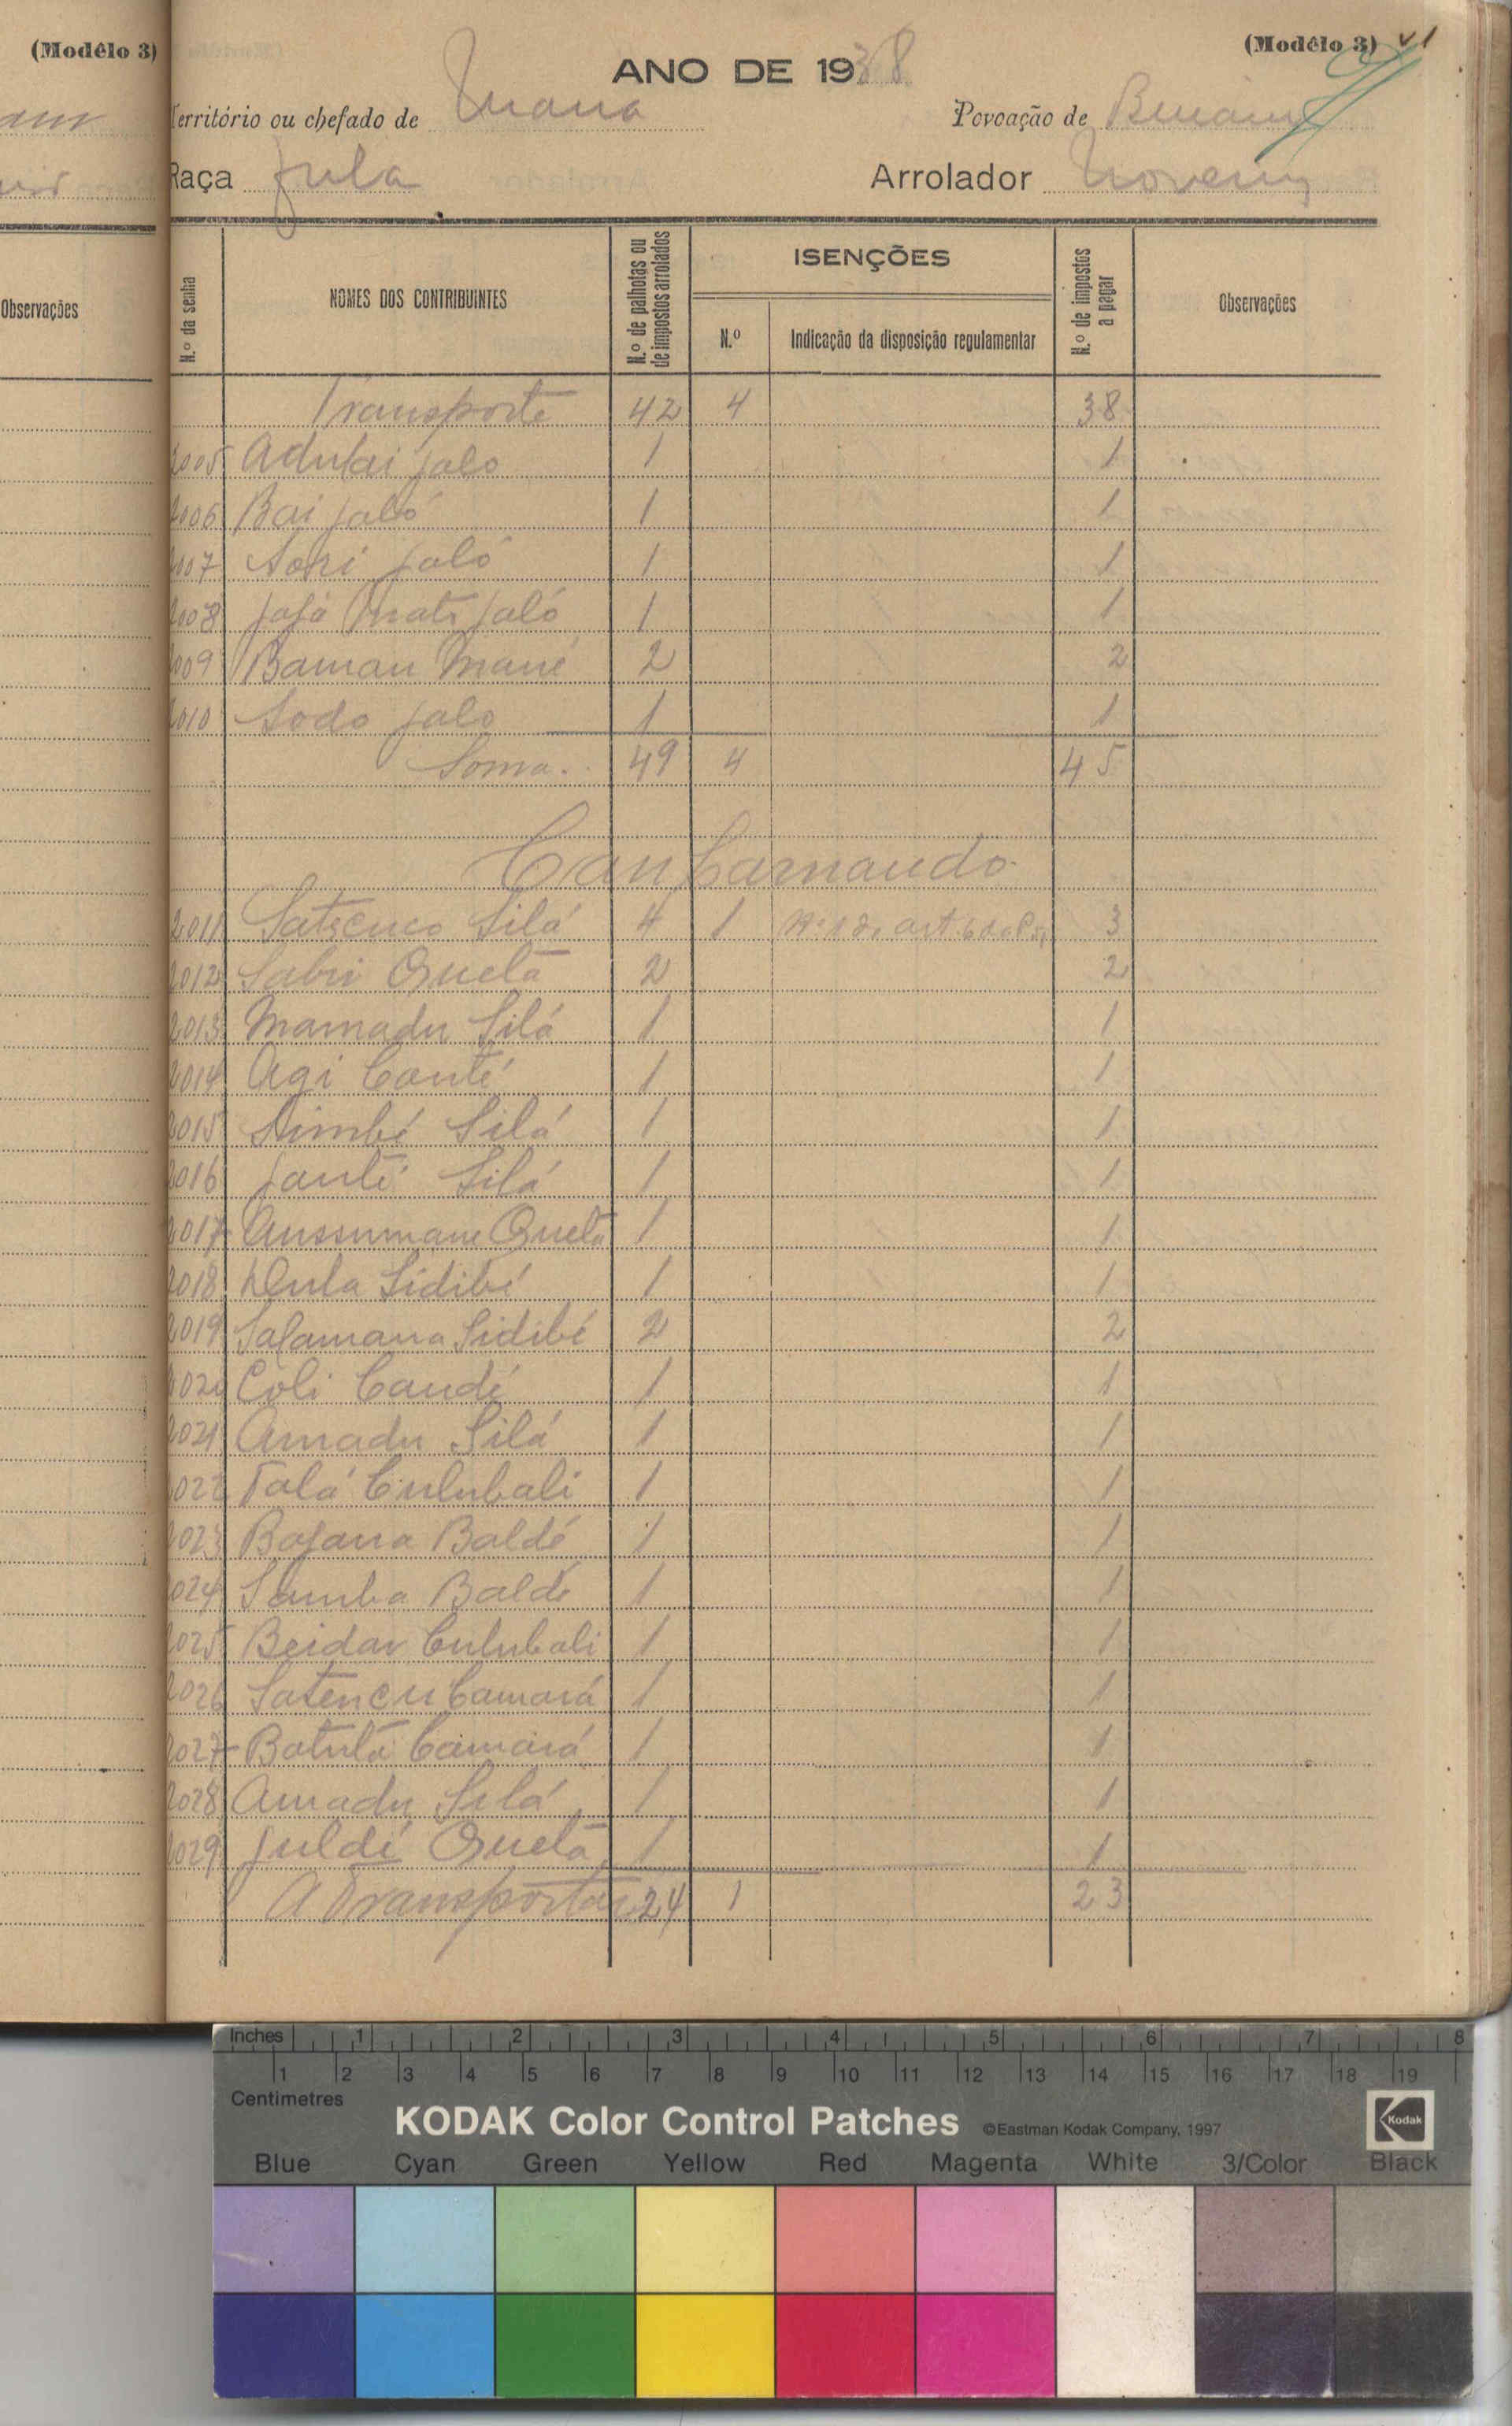 (Modêlo 3)
(Modêlo 3)
ANO DE 1938
Território ou chefado de
Povoação de
Raça Fula
Arrolador
Observações
N.º da senha
NOMES DOS CONTRIBUINTES
N.º de palhotas ou de impostos arrolados
ISENÇÕES
N.º
Indicação da disposição regulamentar
N.º de impostos a pagar
Observações
Transporte 42 4 38
2005 Adulai Jaló 1 1
2006 Bai Jaló 1 1
2007 Sori Jaló 1 1
2008 Jajá Jaló 1 1
2009 Baman Mané 2 2
2010 Sodo Jaló 1 1
Soma.. 49 4 45
2011 Satencuo Silá 4 1 3
2012 Quetá 2 2
2013 Mamadu Silá 1 1
2014 Agi Conté 1 1
2015 Simbé Silá 1 1
2016 Fanté Silá 1 1
2017 Aussumane Quetá 1 1
2018 Sidibé 1 1
2019 Salamana Sidibé 2 2
2020 Coli Candé 1 1
2021 Amadu Silá 1 1
2022 Talá Culubali 1 1
2023 Bajana Baldé 1 1
2024 Samba Baldé 1 1
2025 Beidar Culubali 1 1
2026 Satencu Camará 1 1
2027 Batutá Camará 1 1
2028 Amadu Silá 1 1
2029 Juldé Quetá 1 1
A Transportar 24 1 23
Inches 1 2 3 4 5 6 7 8
1 2 3 4 5 6 7 8 9 10 11 12 13 14 15 16 17 18 19
Centimetres
KODAK Color Control Patches ©Eastman Kodak Company, 1997
Kodak
Blue Cyan Green Yellow Red Magenta White 3/Color Black